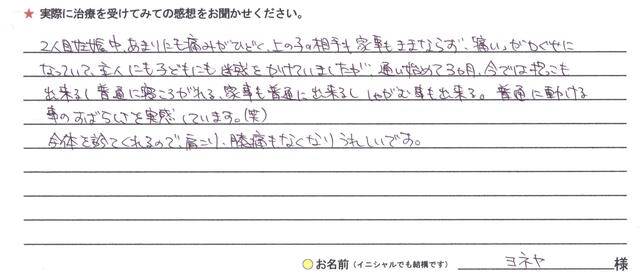 ★ 実際に治療を受けてみての感想をお聞かせください。
2人目妊娠中、あまりにも痛みがひどく、上の子の相手も家事もままならず、"痛い"が口ぐせに
なっていて、主人にも子どもにも迷惑をかけていましたが、通い始めて3ヵ月、今では抱っこも
出来るし普通に寝ころがれる、家事も普通に出来るし しゃがむ事も出来る。普通に動ける
事のすばらしさを実感しています。(笑)
全体を診てくれるので、肩こり、膝痛もなくなりうれしいです。
お名前(イニシャルでも結構です) ヨネヤ 様